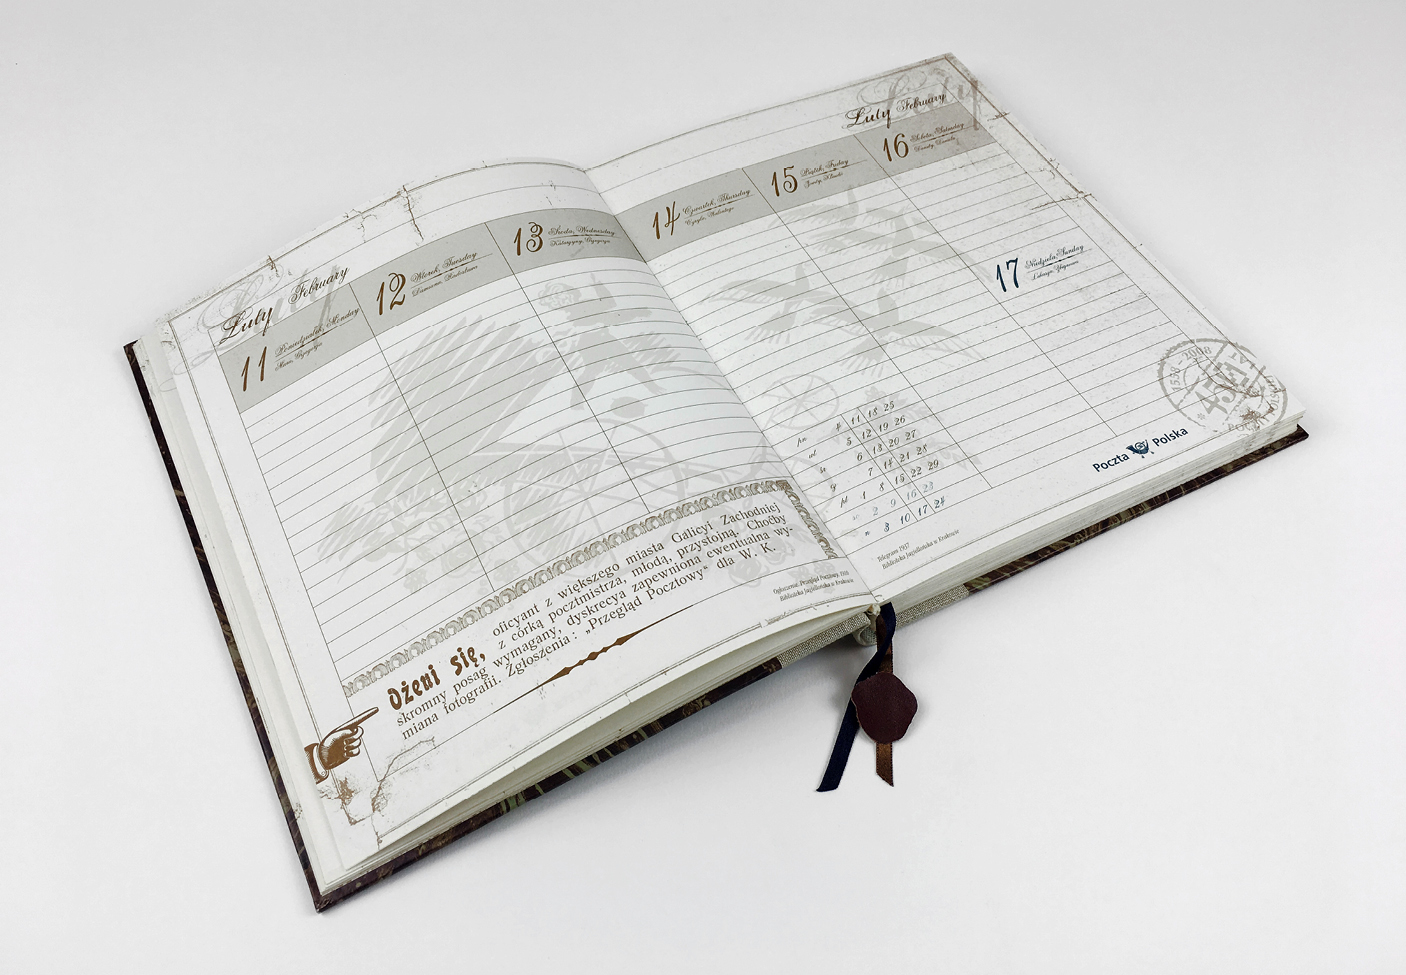 Luty February
11 Poniedziałek, Monday
12 Wtorek, Tuesday
13 Środa, Wednesday
Katarzyny, Grzegorza
Ożeni się,
oficyant z większego miasta Galicyi Zachodniej
z córką pocztmistrza, młodą, przystojną. Choćby
skromny posag wymagany, dyskrecya zapewniona ewentualna wy-
miana fotografii. Zgłoszenia: „Przegląd Pocztowy" dla W. K.
Biblioteka Jagiellońska w Krakowie
Luty February
14 Czwartek, Thursday
15 Piątek, Friday
16 Sobota, Saturday
17 Niedziela, Sunday
pn 4 11 18 25
wt 5 12 19 26
śr 6 13 20 27
cz 7 14 21 28
pt 1 8 15 22 29
2 9 16 23
n 3 10 17 24
Telegram 1937
Biblioteka Jagiellońska w Krakowie
Poczta Polska
1558 - 2008
450 LAT